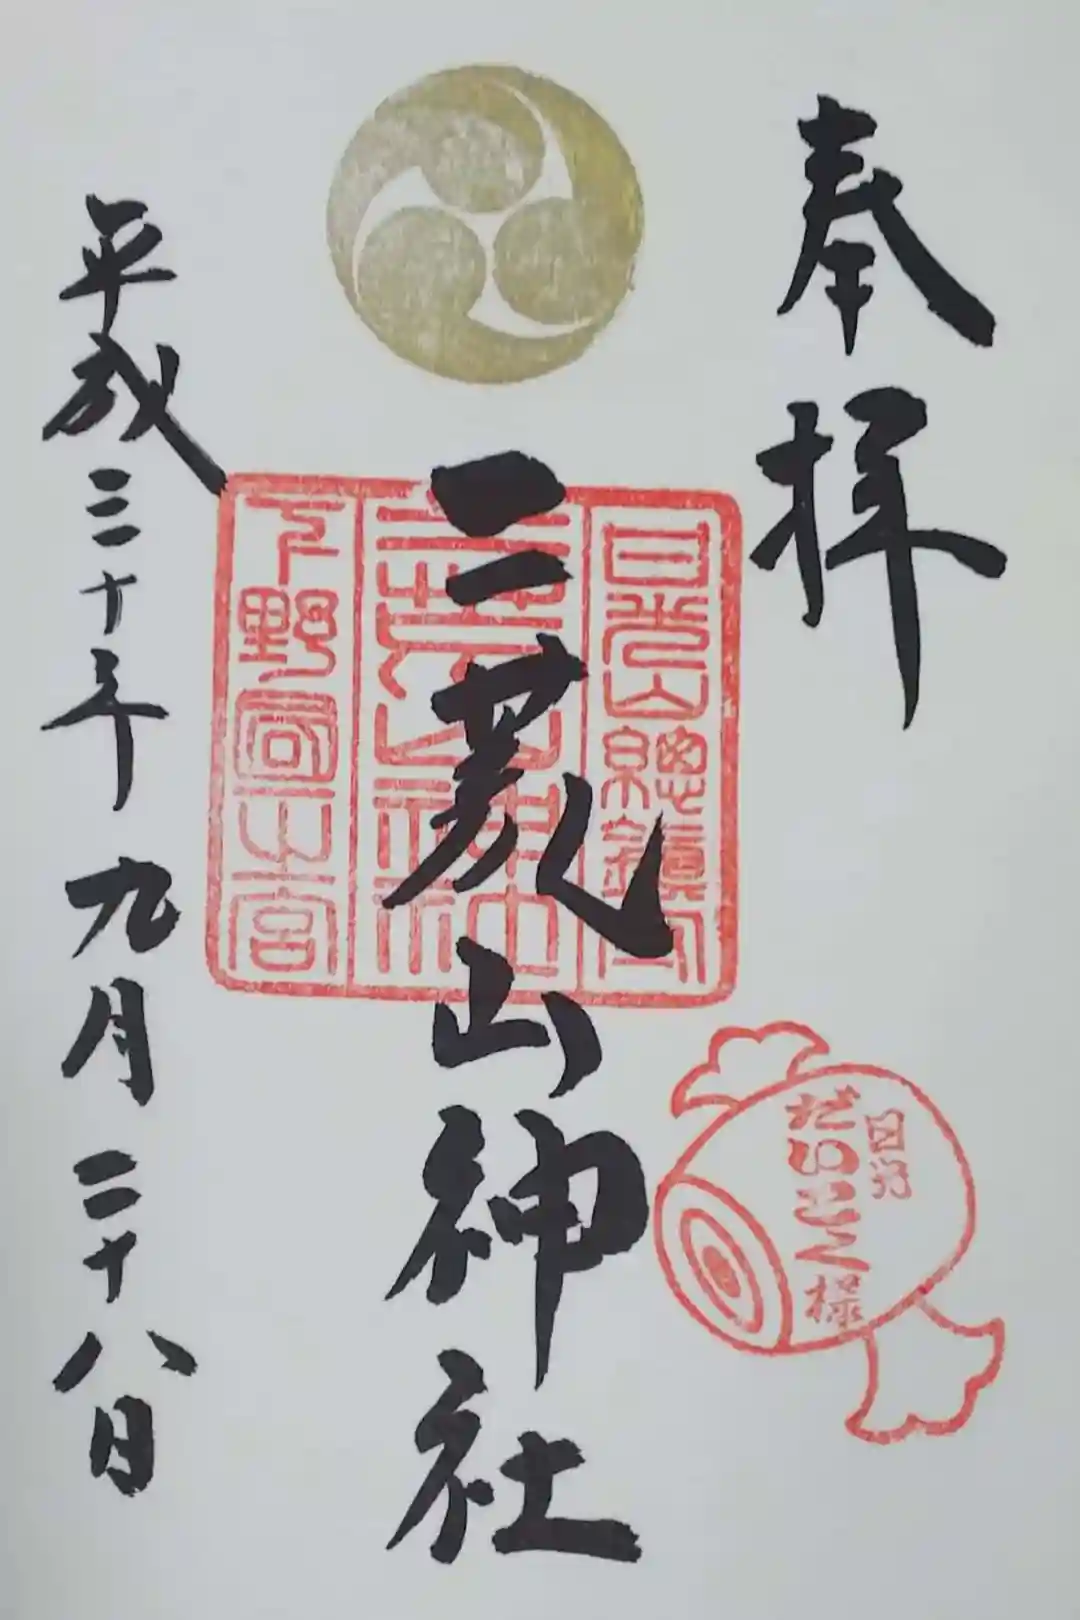 奉拝
日光山總鎮守
二荒山神社
二荒山神社
下野國一之宮
日光
だいこく様
平成三十年九月二十八日